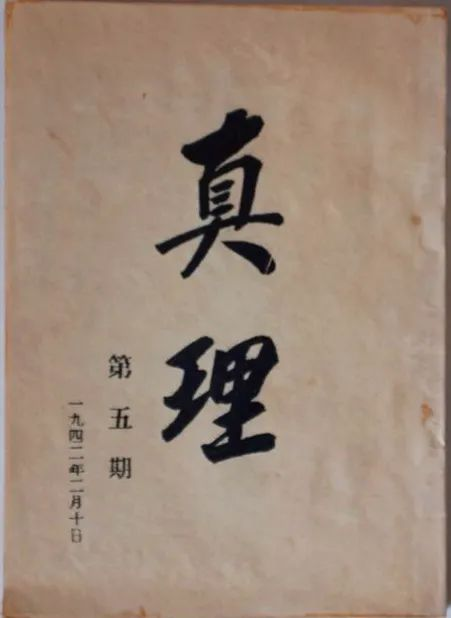 真理
第五期
一九四二年二月十日